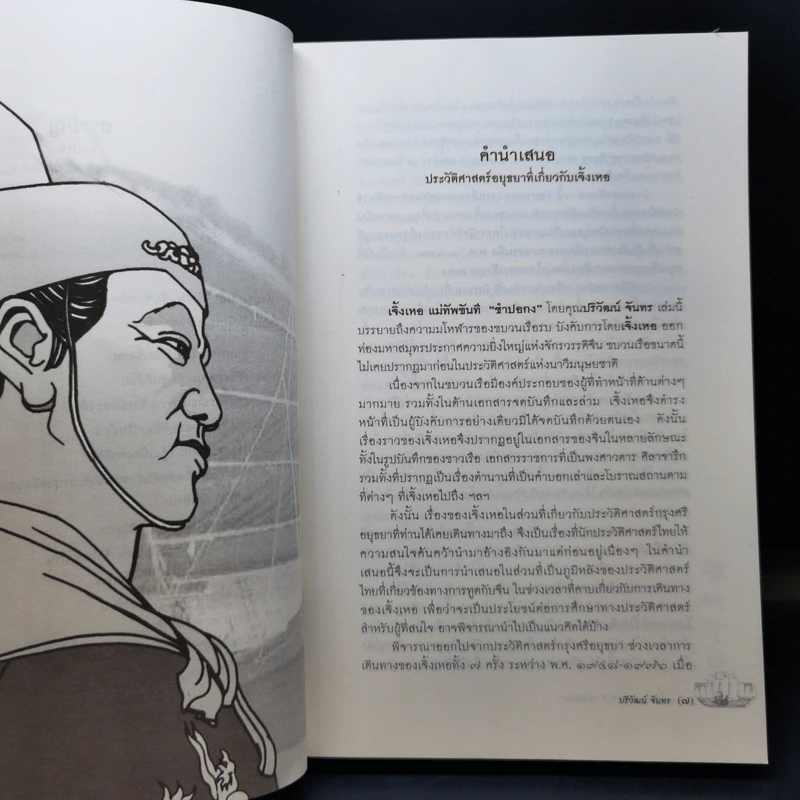 คำนำเสนอ
ประวัติศาสตร์อยุธยาที่เกี่ยวกับเจิ้งเหอ
เจิ้งเหอ แม่ทัพขันที "ซำปอกง" โดยคุณปริวัฒน์ จันทร เล่มนี้
บรรยายถึงความมโหฬารของขบวนเรือรบ บังคับการโดยเจิ้งเหอ ออก
ท่องมหาสมุทรประกาศความยิ่งใหญ่แห่งจักรวรรดิจีน ขบวนเรือขนาดนี้
ไม่เคยปรากฏมาก่อนในประวัติศาสตร์แห่งนาวีมนุษยชาติ
เนื่องจากในขบวนเรือมีองค์ประกอบของผู้ที่ทำหน้าที่ด้านต่างๆ
มากมาย รวมทั้งในด้านเอกสารจดบันทึกและล่าม เจิ้งเหอจึงดำรง
หน้าที่เป็นผู้บังคับการอย่างเดียวมิได้จดบันทึกด้วยตนเอง ดังนั้น
เรื่องราวของเจิ้งเหอจึงปรากฏอยู่ในเอกสารของจีนในหลายลักษณะ
ทั้งในรูปบันทึกของชาวเรือ เอกสารราชการที่เป็นพงศาวดาร ศิลาจารึก
รวมทั้งที่ปรากฏเป็นเรื่องตำนานที่เป็นคำบอกเล่าและโบราณสถานตาม
ที่ต่างๆ ที่เจิ้งเหอไปถึง ฯลฯ
ดังนั้น เรื่องของเจิ้งเหอในส่วนที่เกี่ยวกับประวัติศาสตร์กรุงศรี
อยุธยาที่ท่านได้เคยเดินทางมาถึง จึงเป็นเรื่องที่นักประวัติศาสตร์ไทยให้
ความสนใจค้นคว้านำมาอ้างอิงกันมาแต่ก่อนอยู่เนื่องๆ ในคำนำ
เสนอนี้จึงจะเป็นการนำเสนอในส่วนที่เป็นภูมิหลังของประวัติศาสตร์
ไทยที่เกี่ยวข้องทางการทูตกับจีน ในช่วงเวลาที่คาบเกี่ยวกับการเดินทาง
ของเจิ้งเหอ เพื่อว่าจะเป็นประโยชน์ต่อการศึกษาทางประวัติศาสตร์
สำหรับผู้ที่สนใจ อาจพิจารณานำไปเป็นแนวคิดได้บ้าง
พิจารณาออกไปจากประวัติศาสตร์กรุงศรีอยุธยา ช่วงเวลาการ
เดินทางของเจิ้งเหอทั้ง ๗ ครั้ง ระหว่าง พ.ศ. ๑๙๔๘-๑๙๗๖ เมื่อ
ปริวัฒน์ จันทร (๗)